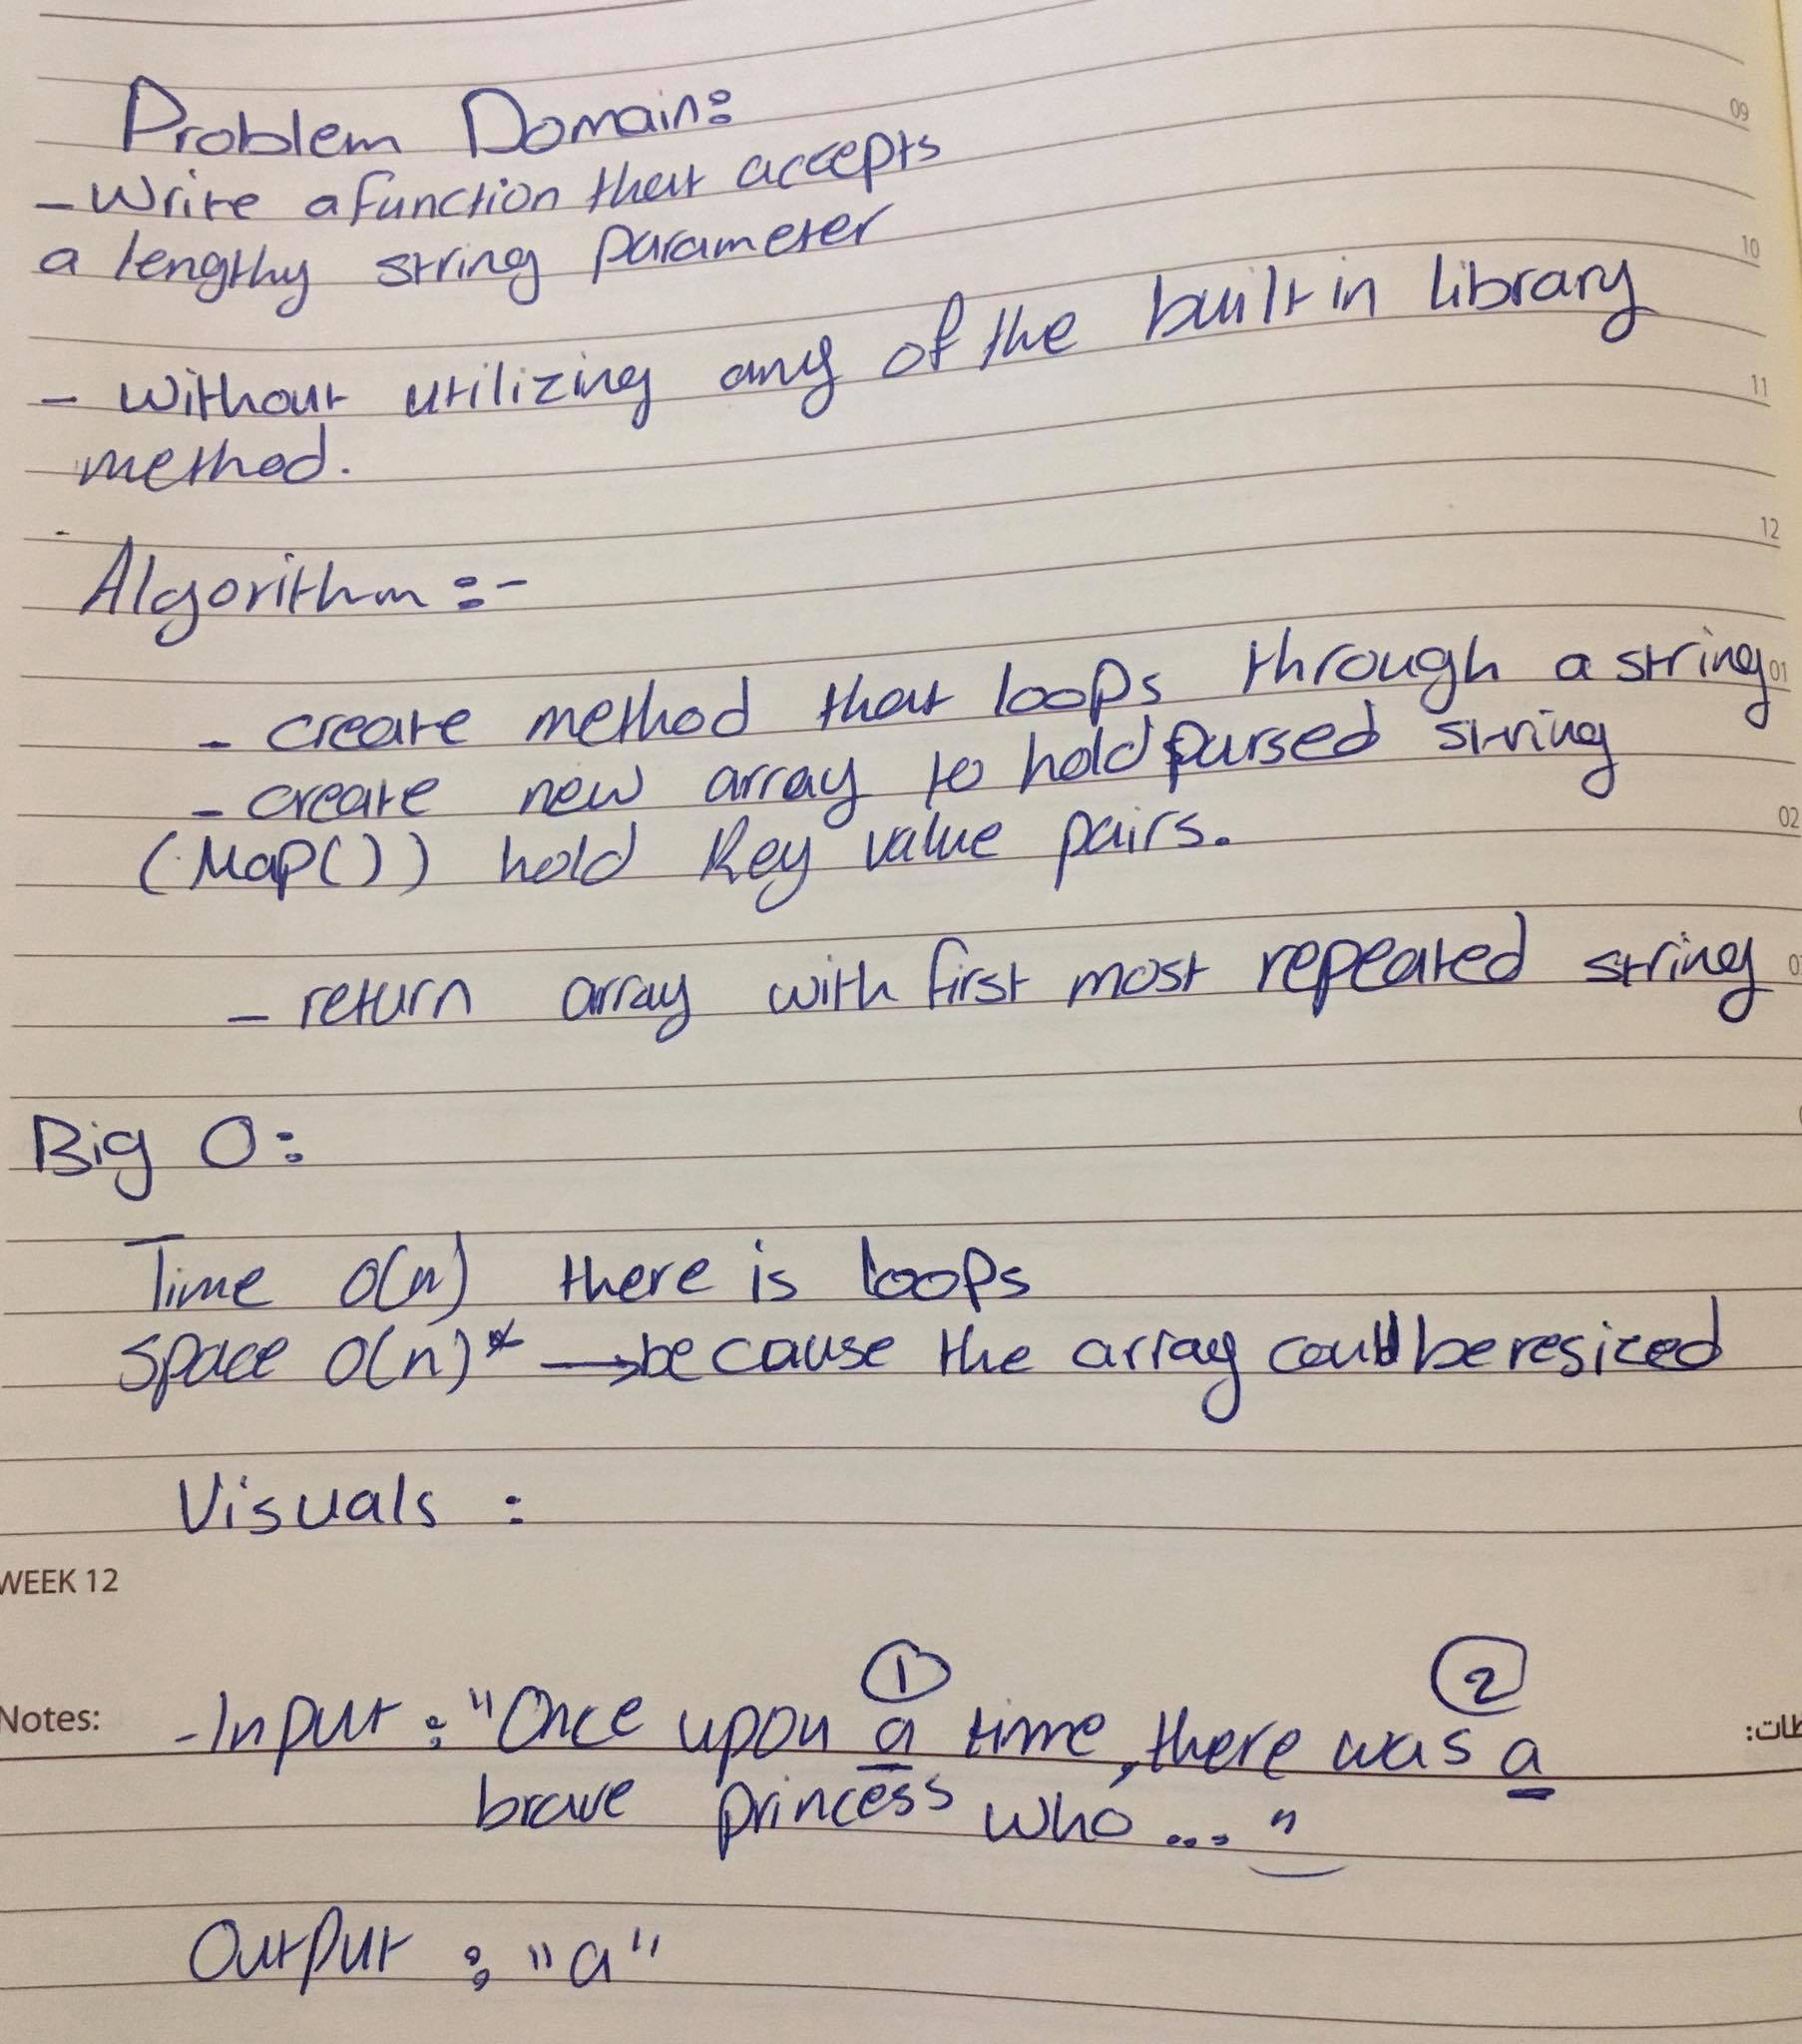 Problem Domain:
- Write a function that accepts
a lengthy string parameter
- without utilizing any of the built in library
method.
Algorithm :-
- create method that loops through a string
- create new array to hold parsed string
(Map()) hold key value pairs.
- return array with first most repeated string
Big O:
Time O(n) there is loops
Space O(n)* → because the array could be resized
Visuals :
WEEK 12
Notes:
1 2
- Input : "Once upon a time, there was a
brave princess who ... "
Output : "a"
09
10
11
12
01
02